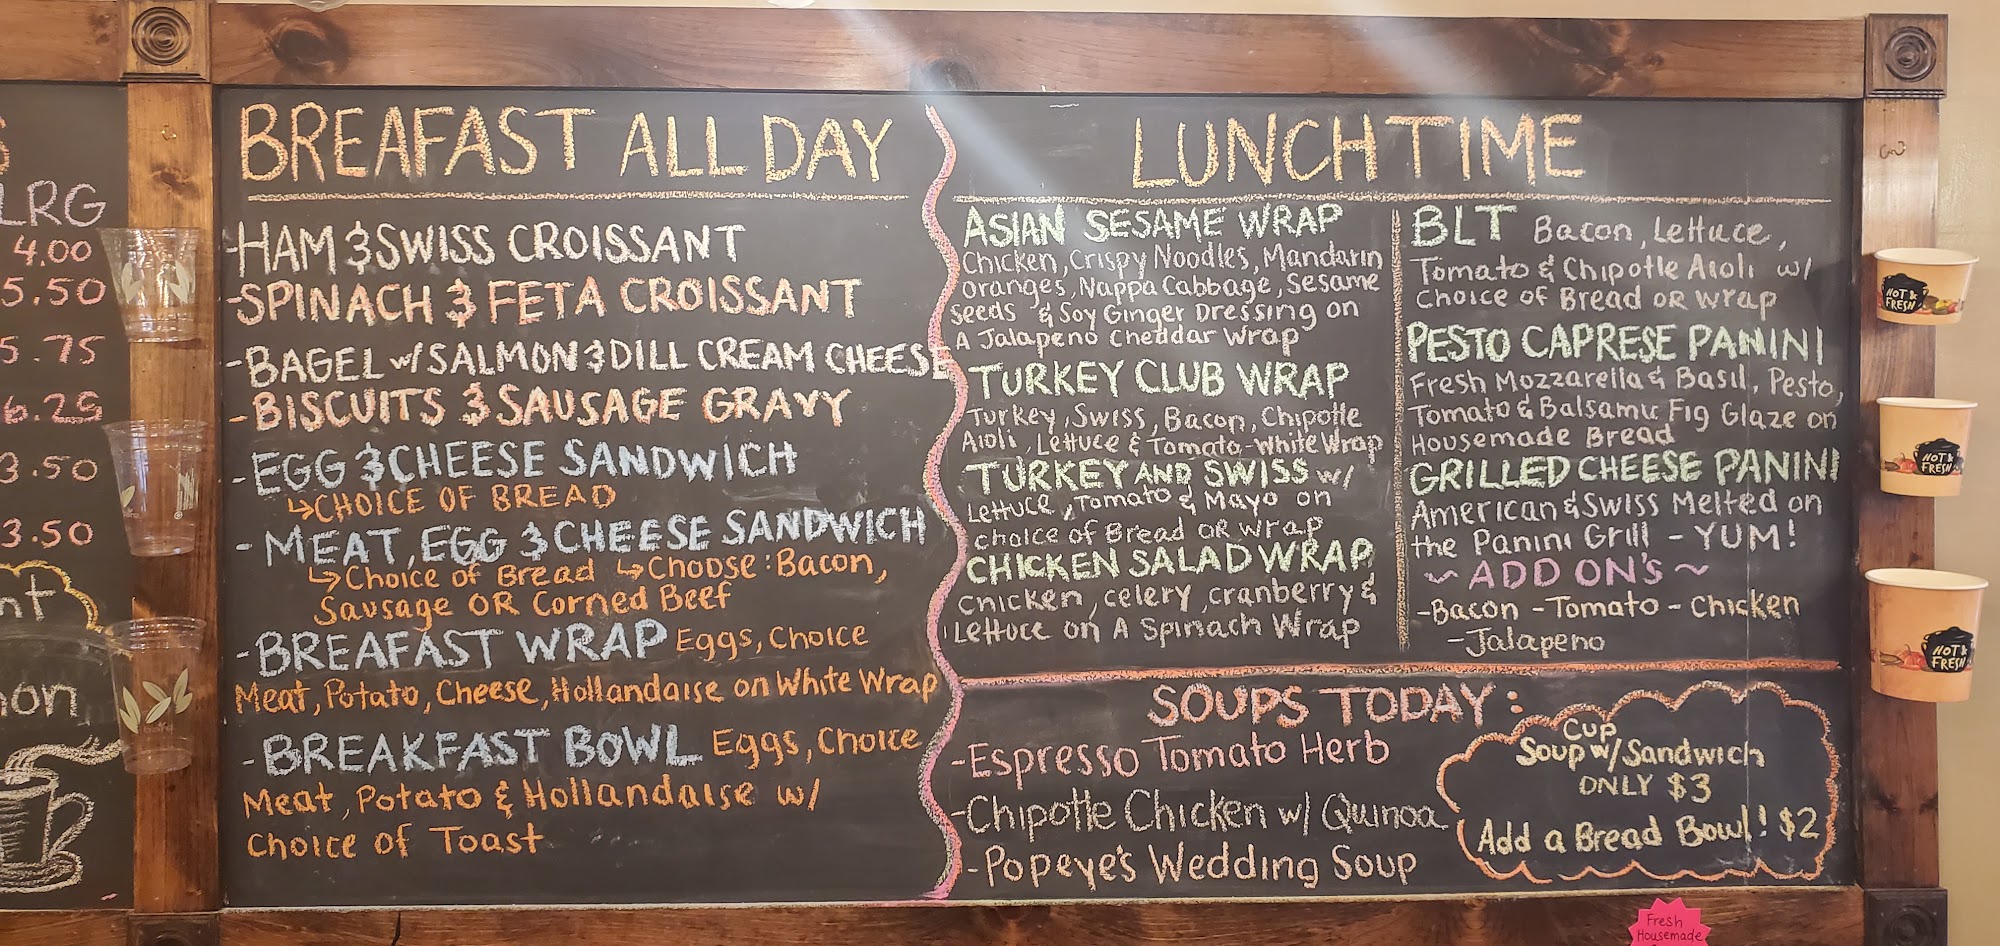 LRG
4.00
5.50
5.75
6.25
3.50
3.50
BREAFAST ALL DAY
-HAM & SWISS CROISSANT
-SPINACH & FETA CROISSANT
-BAGEL w/ SALMON & DILL CREAM CHEESE
-BISCUITS & SAUSAGE GRAVY
-EGG & CHEESE SANDWICH
↳CHOICE OF BREAD
-MEAT, EGG & CHEESE SANDWICH
↳Choice of Bread ↳Choose: Bacon,
Sausage OR Corned Beef
-BREAFAST WRAP Eggs, Choice
Meat, Potato, Cheese, Hollandaise on White Wrap
-BREAKFAST BOWL Eggs, Choice
Meat, Potato & Hollandaise w/
Choice of Toast
LUNCHTIME
ASIAN SESAME WRAP
Chicken, Crispy Noodles, Mandarin
oranges, Nappa Cabbage, Sesame
seeds & Soy Ginger Dressing on
A Jalapeno Cheddar Wrap
TURKEY CLUB WRAP
Turkey, Swiss, Bacon, Chipotle
Aioli, Lettuce & Tomato-White Wrap
TURKEY AND SWISS w/
Lettuce, Tomato & Mayo on
choice of Bread OR Wrap
CHICKEN SALAD WRAP
Chicken, celery, cranberry &
Lettuce on A Spinach Wrap
BLT Bacon, Lettuce,
Tomato & Chipotle Aioli w/
Choice of Bread OR Wrap
PESTO CAPRESE PANINI
Fresh Mozzarella & Basil, Pesto,
Tomato & Balsamic Fig Glaze on
Housemade Bread
GRILLED CHEESE PANINI
American & Swiss Melted on
the Panini Grill - YUM!
~ ADD ON'S ~
-Bacon -Tomato - Chicken
-Jalapeno
SOUPS TODAY:
-Espresso Tomato Herb
-Chipotle Chicken w/ Quinoa
-Popeye's Wedding Soup
Cup
Soup w/ Sandwich
ONLY $3
Add a Bread Bowl! $2
HOT &
FRESH
HOT &
FRESH
HOT &
FRESH
Fresh
Housemade